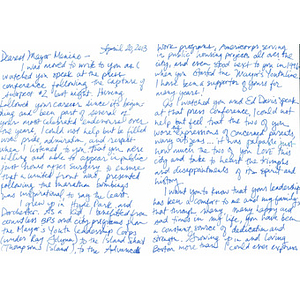 April 20, 2013
Dearest Mayor Menino –
I was moved to write to you as I
watched you speak at the press
conference following the capture of
suspect #2 last night. Having
followed your career since its begin-
and been part of several of
your most celebrated endeavors over
the years, I could not help but be filled
with pride, admiration and respect
as I listened to you. That you were
willing and able to appear in public
just hours after surgery to ensure
that a united front was presented
following the marathon bombings
was inspirational to say the least.
I grew up in Hyde Park and
Dorchester. As a kid, I benefitted from
countless BPS and city programs, from
the Mayor's Youth Leadership Corps
(under Ray Flynn) to the Island
Thompson Island, to the Advanced
Work programs, Americorps serving
in public working projects all over the
city, and even spoke next to you in 1996
when you started the Mayor's Youthline.
I have been a supporter of yours for
many years!
As I watched you and Ed Davis speak
at that press conference, I could not
help but feel that the two of you
were expressions of concerned parents,
way out past. It was palpable just
how much the two of you love this
city and take to heart the triumphs
and disappointments of its spirit and
history.
I want you to know that your leadership
has been a comfort to me and my family;
that through many, many happy and
sad times in my life, you have been
a constant source of dedication and
strength. Growing up in and loving
Boston more than I could ever express